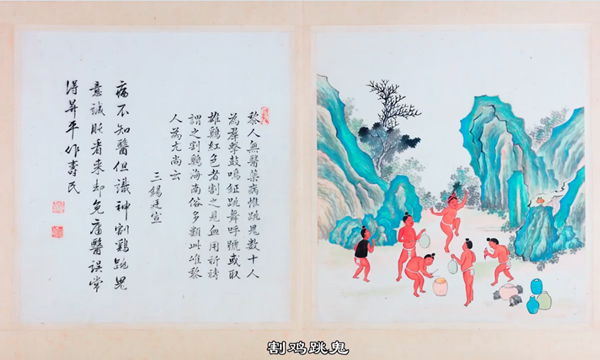 黎人無醫藥病惟跳鬼數十人
為羣擊鼓鳴鉦跳舞呼號或取
雄鷄紅色者割之見血用祈禱
謂之割鷄海南俗多類此惟黎
人為尤尚云
三錫宣
病不知醫但識神割鷄跳鬼
意誠肫看来却免庸醫誤常
得昇平作壽民
割鸡跳鬼